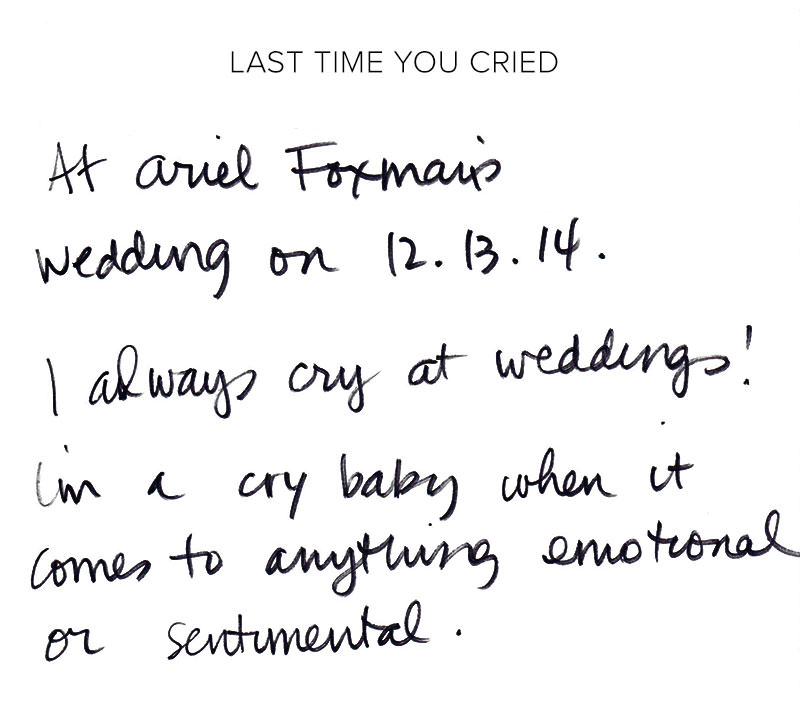 LAST TIME YOU CRIED
At Ariel Foxman's
wedding on 12.13.14.
I always cry at weddings!
I'm a cry baby when it
comes to anything emotional
or sentimental.